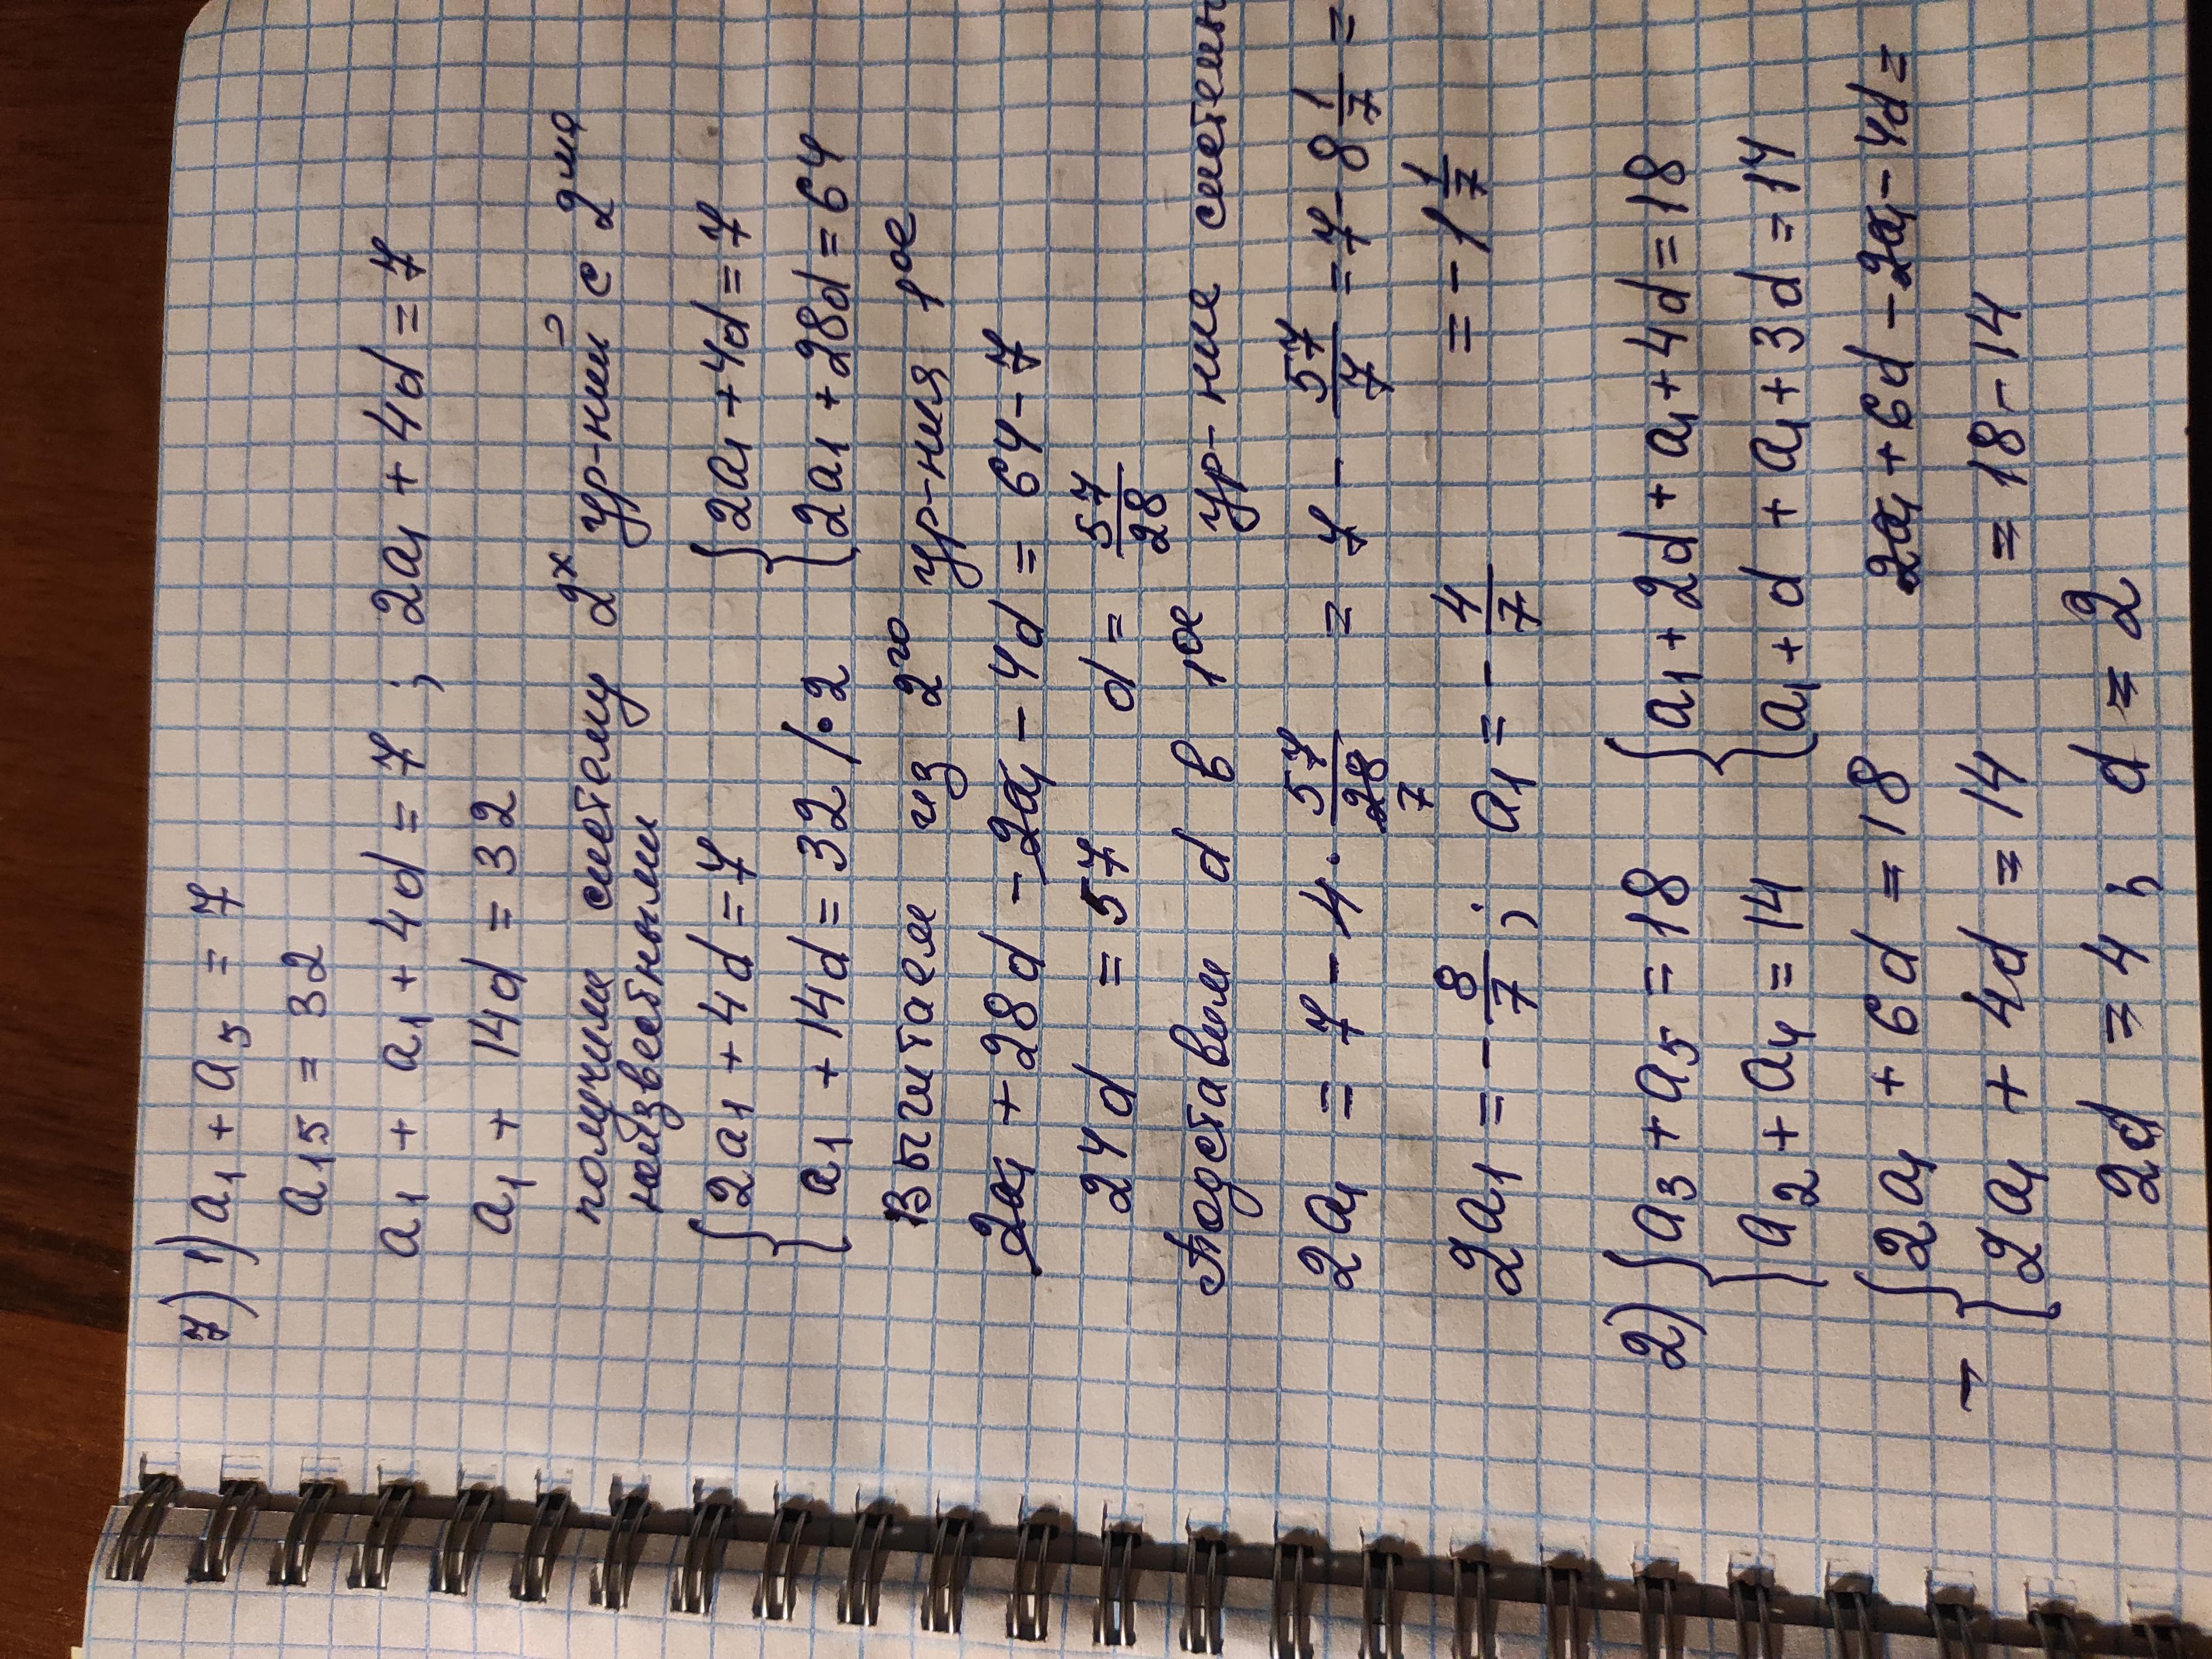 7) 1) a₁ + a₅ = 7
a₁₅ = 32
a₁ + a₁ + 4d = 7 ; 2a₁ + 4d = 7
a₁ + 14d = 32
получим систему 2ˣ ур-ний с 2мя
неизвестными
{ 2a₁ + 4d = 7 { 2a₁ + 4d = 7
{ a₁ + 14d = 32 /·2 { 2a₁ + 28d = 64
Вычитаем из 2го ур-ния 1ое
2a₁ + 28d - 2a₁ - 4d = 64 - 7
24d = 57 d = 57/28
Подставим d в 1ое ур-ние систем
2a₁ = 7 - 4 · 57/28 7 = 7 - 57/7 = 7 - 8 1/7 =
= - 1 1/7
2a₁ = - 8/7 ; a₁ = - 4/7
2) { a₃ + a₅ = 18 { a₁ + 2d + a₁ + 4d = 18
{ a₂ + a₄ = 14 { a₁ + d + a₁ + 3d = 14
{ 2a₁ + 6d = 18 2a₁ + 6d - 2a₁ - 4d =
- { 2a₁ + 4d = 14 = 18 - 14
2d = 4 ; d = 2